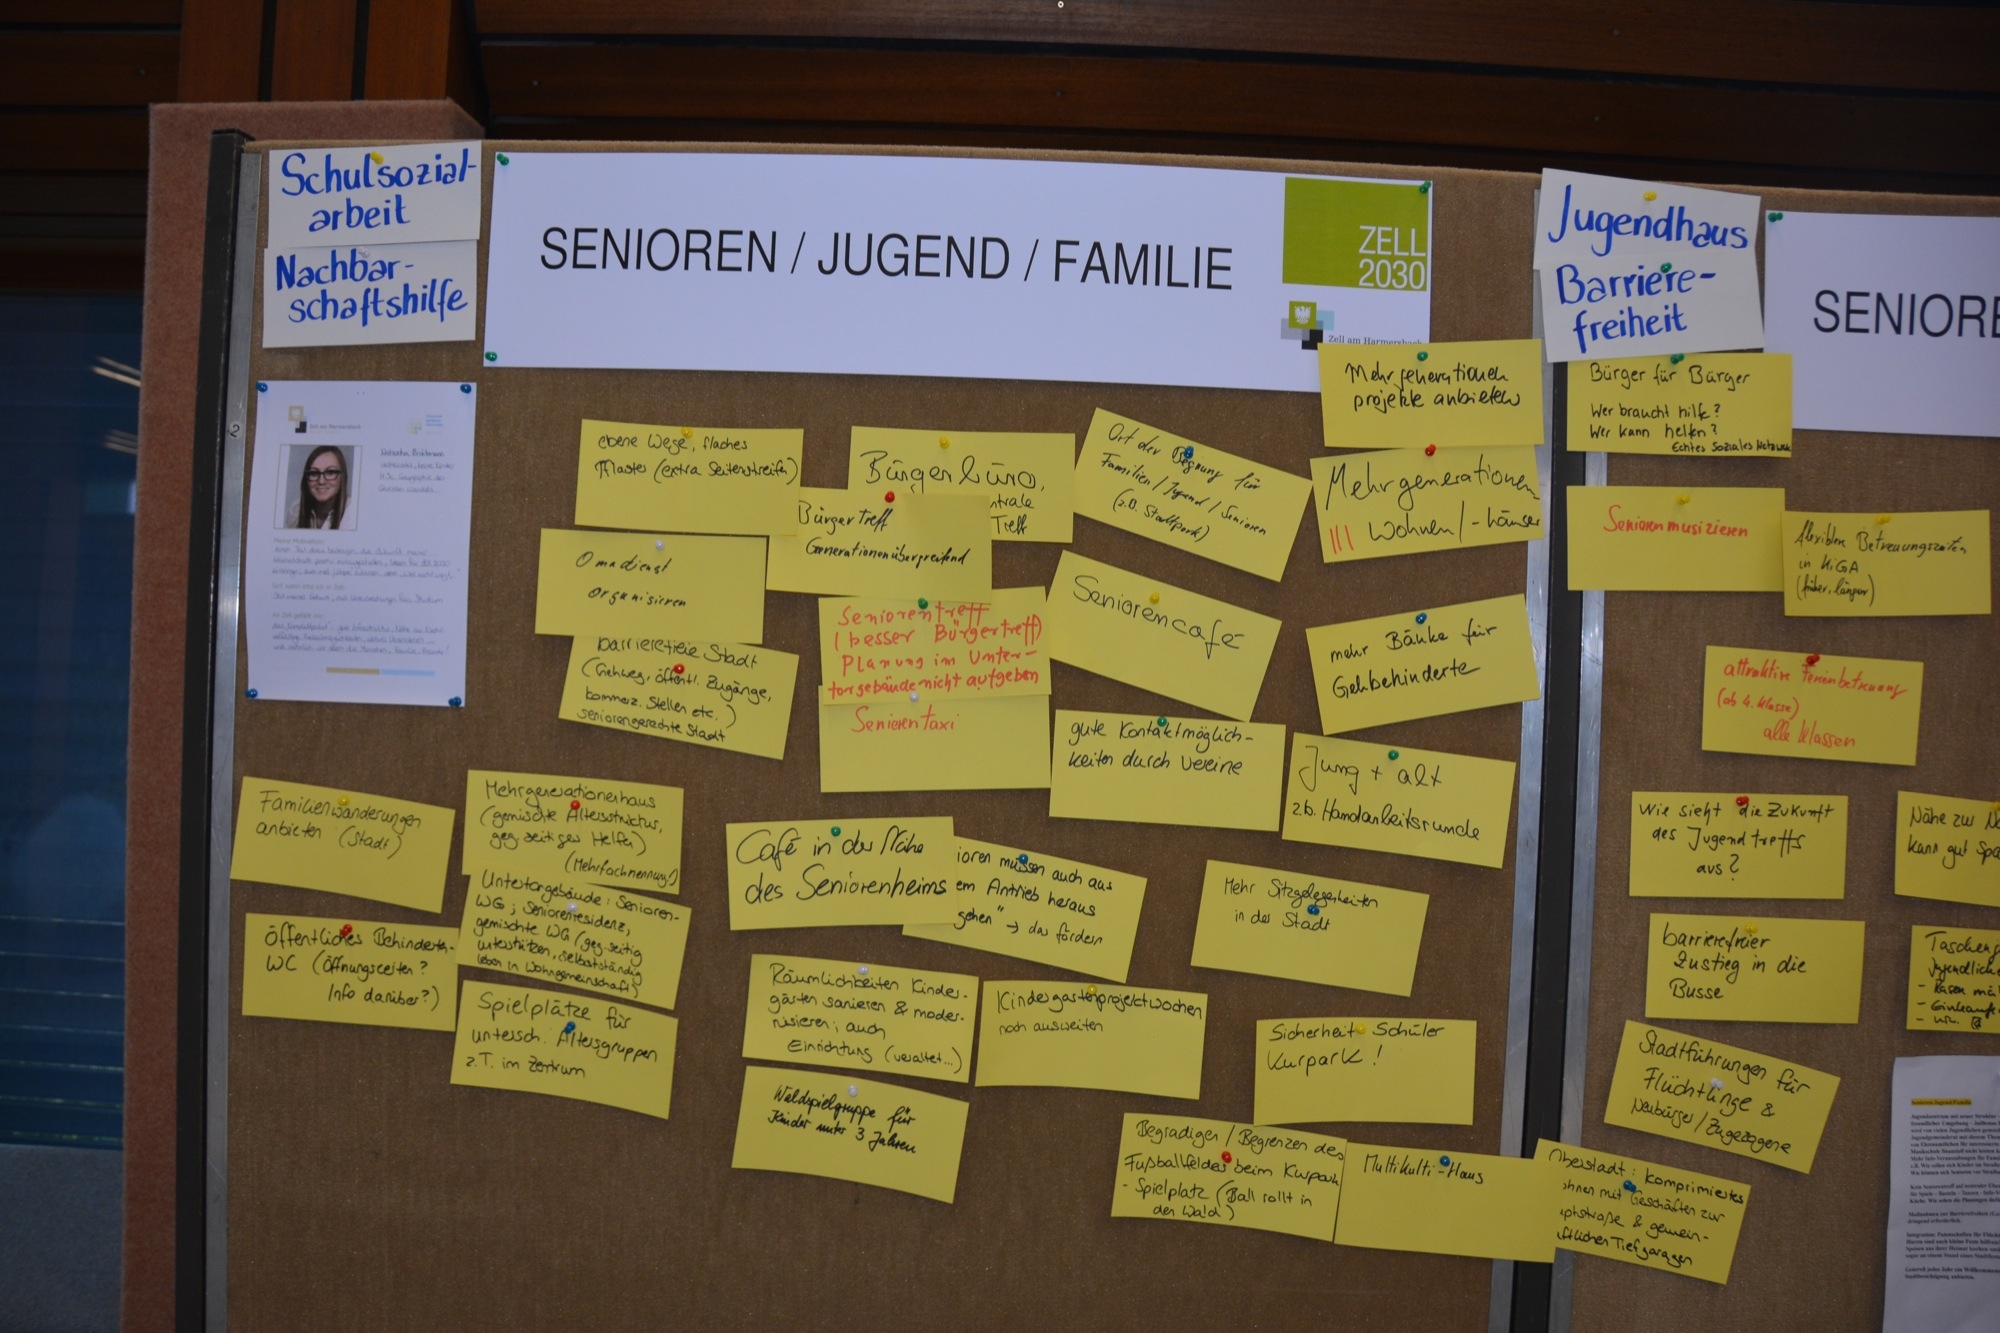 Schulsozial-
arbeit
Nachbar-
schaftshilfe
SENIOREN / JUGEND / FAMILIE
ZELL
2030
Zell am Harmersbach
Jugendhaus
Barriere-
freiheit
SENIORE
2
Zell am Harmersbach
Meine Motivation:
ebene Wege, flaches
Pflaster (extra Seitenstreifen)
Bürgerbüro,
ntrale
Treff
Bürgertreff
Generationenübergreifend
Omadienst
organisieren
barrierefreie Stadt
(Gehweg, öffentl. Zugänge,
kommerz. Stellen etc.)
seniorengerechte Stadt
Seniorentreff
(besser Bürgertreff)
Planung im Unter-
torgebäude nicht aufgeben
Seniorentaxi
Ort der Begnung für
Familien / Jugend / Senioren
(z.B. Stadtpark)
Seniorencafé
gute Kontaktmöglich-
keiten durch Vereine
Mehrgenerationen
projekte anbieten
Mehrgenerationen
||| Wohnen / -häuser
mehr Bänke für
Gehbehinderte
Jung + alt
z.b. Handarbeitsrunde
Familienwanderungen
anbieten (Stadt)
Öffentliches Behinderten-
WC (Öffnungszeiten?
Info darüber?)
Mehrgenerationenhaus
(gemischte Altersstruktur,
geg.seitiges Helfen)
(Mehrfachnennung)
Untertorgebäude: Senioren-
WG; Seniorenresidenz,
gemischte WG (geg.seitig
unterstützen, selbstständig
leben in Wohngemeinschaft)
Spielplätze für
untersch. Altersgruppen
z.T. im Zentrum
Café in der Nähe
des Seniorenheims
ioren müssen auch aus
em Antrieb heraus
gehen" → das fördern
Räumlichkeiten Kinder-
gärten sanieren & moder-
nisieren; auch
Einrichtung (veraltet...)
Waldspielgruppe für
Kinder unter 3 Jahren
Kindergartenprojektwochen
noch ausweiten
Mehr Sitzgelegenheiten
in der Stadt
Sicherheit Schüler
Kurpark!
Begradigen / Begrenzen des
Fußballfeldes beim Kurpark
- Spielplatz (Ball rollt in
den Wald)
Multikulti-Haus
Bürger für Bürger
Wer braucht hilfe?
Wer kann helfen?
Echtes Soziales Netzwerk
Senioren musizieren
flexiblere Betreuungszeiten
in KiGA
(früher, länger)
attraktive Ferienbetreuung
(ab 4. Klasse)
alle Klassen
Wie sieht die Zukunft
des Jugendtreffs
aus?
Nähe zur
kann gut
barrierefreier
Zustieg in die
Busse
Jugendliche
Stadtführungen für
Flüchtlinge &
Neubürger / Zugezogene
berstadt: komprimiertes
ohnen mit Geschäften zur
uptstraße & gemein-
aftlichen Tiefgaragen
Senioren/Jugend/Familie